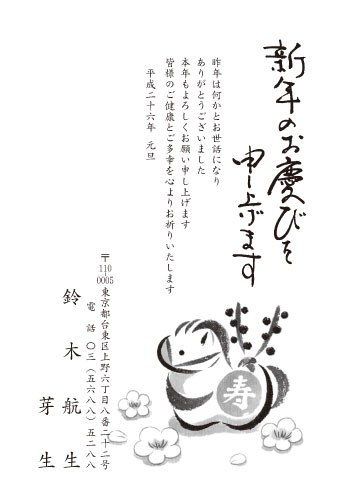 新年のお慶びを
申し上げます
昨年は何かとお世話になり
ありがとうございました
本年もよろしくお願い申し上げます
皆様のご健康とご多幸を心よりお祈りいたします
平成二十六年 元旦
寿
〒110-0005 東京都台東区上野六丁目八番二十二号
電話 〇三(五六八八)五二八八
鈴木 航生
芽生